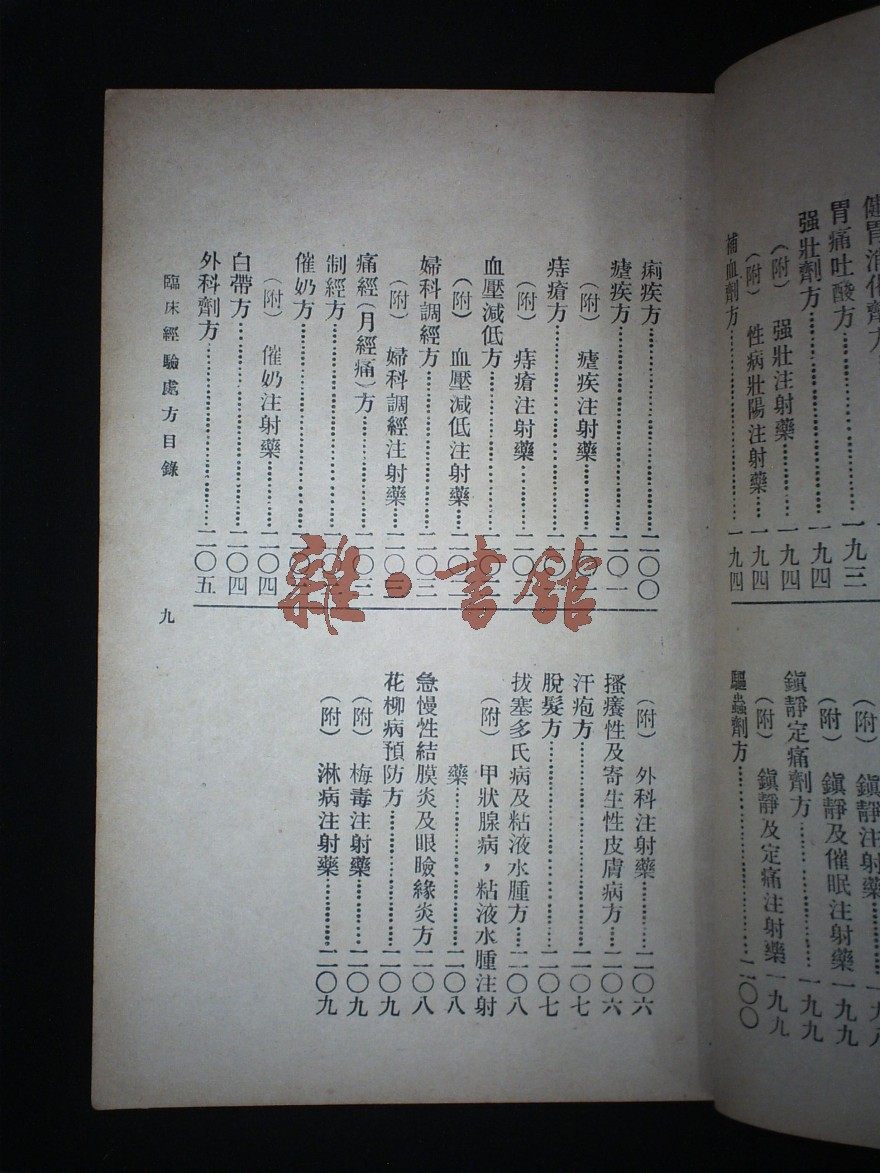 健胃消化劑方
胃痛吐酸方……一九三
强壯劑方……一九四
（附） 强壯注射藥……一九四
（附） 性病壯陽注射藥……一九四
補血劑方……一九四
（附） 鎭靜注射藥……一九八
（附） 鎭靜及催眠注射藥 一九九
鎭靜定痛劑方……一九九
（附） 鎭靜及定痛注射藥 一九九
驅蟲劑方……二〇〇
痢疾方……二〇〇
瘧疾方……二〇一
（附） 瘧疾注射藥……二〇
痔瘡方……二〇
（附） 痔瘡注射藥……二〇
血壓減低方……二〇
（附） 血壓減低注射藥……二〇
婦科調經方……二〇三
（附） 婦科調經注射藥……二〇三
痛經（月經痛）方……二〇三
制經方……二〇
催奶方……二〇
（附） 催奶注射藥……二〇四
白帶方……二〇四
外科劑方……二〇五
（附） 外科注射藥……二〇六
搔癢性及寄生性皮膚病方…二〇六
汗疱方……二〇七
脫髮方……二〇七
拔塞多氏病及粘液水腫方…二〇八
（附） 甲狀腺病，粘液水腫注射
藥……二〇八
急慢性結膜炎及眼瞼緣炎方二〇八
花柳病預防方……二〇九
（附） 梅毒注射藥……二〇九
（附） 淋病注射藥……二〇九
臨床經驗處方目錄
九
雜·書館